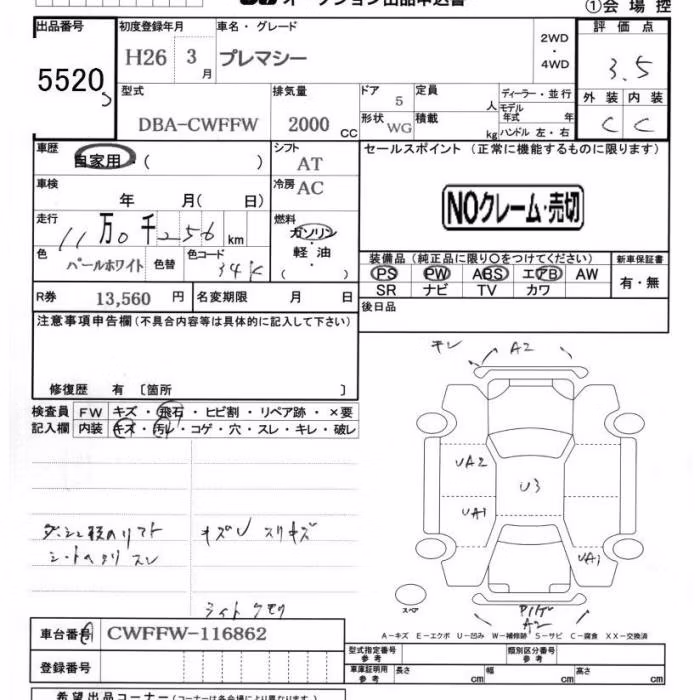 オークション出品申込書
①会場控
出品番号
5520
初度登録年月
H26 3月
車名・グレード
プレマシー
2WD
・
4WD
評価点
3.5
外装 内装
C C
型式
DBA-CWFFW
排気量
2000 CC
ドア
5
形状 WG
定員
人
積載
kg
ディーラー・並行
モデル年式 年
ハンドル 左・右
車歴
自家用・( )
シフト
AT
車検
年 月( 日)
冷房 AC
走行
11万0千256km
燃料
ガソリン・軽油・( )
色
パールホワイト
色替
色コード
34K
R券 13,560 円
名変期限 月 日
セールスポイント (正常に機能するものに限ります)
NOクレーム・売切
装備品(純正品に限り○をつけてください)
新車保証書
PS PW ABS エアB AW
有・無
SR ナビ TV カワ
後日品
注意事項申告欄(不具合内容等は具体的に記入して下さい)
修復歴 有〔箇所 〕
検査員記入欄
FW キズ・飛石・ヒビ割・リペア跡・×要
内装 キズ・汚レ・コゲ・穴・スレ・キレ・破レ
キレ A2
UA2
U3
UA1
UA1
シートヘタリ スレ
ライトクモリ
スペア
A2
A-キズ E-エクボ U-凹み W-補修跡 S-サビ C-腐食 XX-交換済
車台番号 CWFFW-116862
登録番号
型式指定番号 参考
類別区分番号 参考
車庫証明用 参考 長さ cm 幅 cm 高さ cm
希望出品コーナー(コーナーは各会場により異なります)